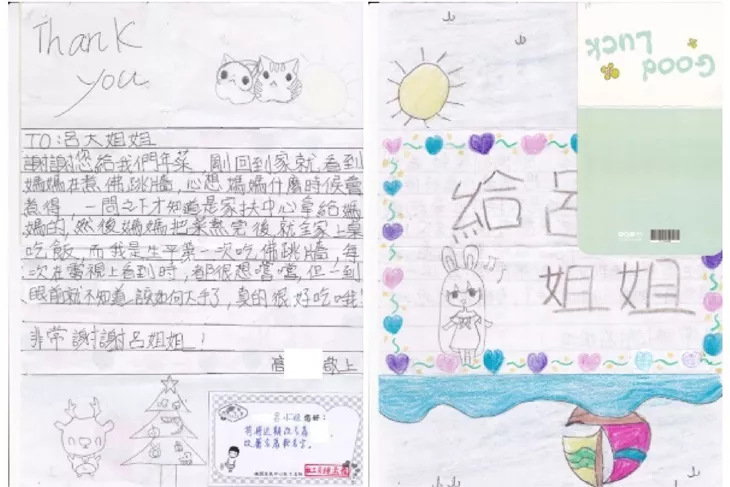 Thank
you
TO:呂大姐姐
謝謝您給我們年菜,剛回到家就看到
媽媽在煮佛跳牆,心想媽媽什麼時候會
煮得,一問之下才知道是家扶中心拿給媽
媽的,然後媽媽把菜熱完後就全家上桌
吃飯,而我是生平第一次吃佛跳牆,每
次在電視上看到時,都很想嚐嚐,但一到
眼前就不知道該如何大手了,真的很好吃哦!
非常謝謝呂姐姐!
高 敬上
呂小姐您好:
GOOD
LUCK
給呂
姐姐